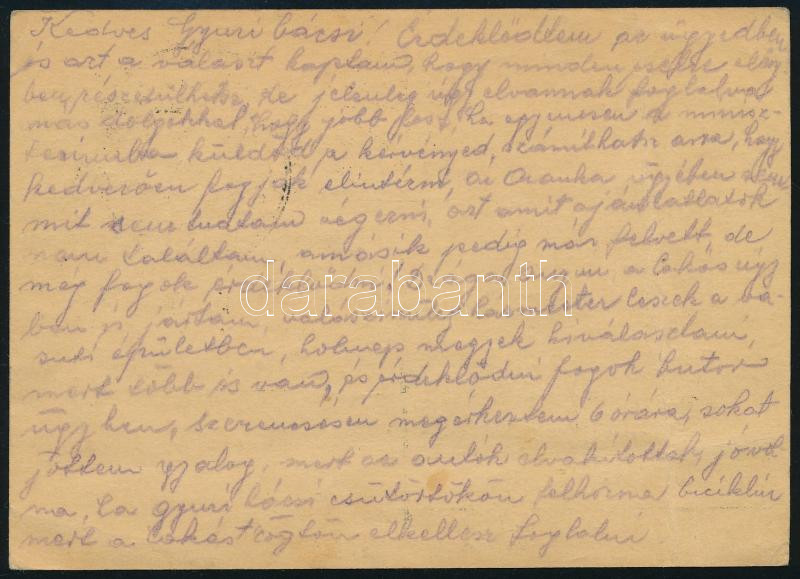 Kedves Gyuri bácsi! Érdeklődtem az ügyedben
és azt a választ kaptam, hogy minden esetre előny
ben részesülhetsz, de jelenleg úgy elvannak foglalva
más dolgokkal, hogy jobb lesz, ha egyenesen a minisz-
teriumba küldöd a kérvényed, számíthatsz arra, hogy
kedvezően fogják elintézni, az Aranka ügyében sem
mit nem tudtam végezni, azt amit ajánlottatok
nem találtam, amásik pedig már felvett, de
még fogok érdeklődni. Drága a lakás ügy
ben is jártam, lesek a va-
suti épületben, holnap megyek kiválasztani,
mert több is van, és érdeklődni fogok butor
ügyben, szerencsésen megérkeztem 6 órára, sokat
jöttem gyalog, mert az autók elvakítottak, jó vol
na, ha gyuri bácsi csütörtökön felhozna biciklin
mert a lakást rögtön elkellesz foglalni.
darabanth